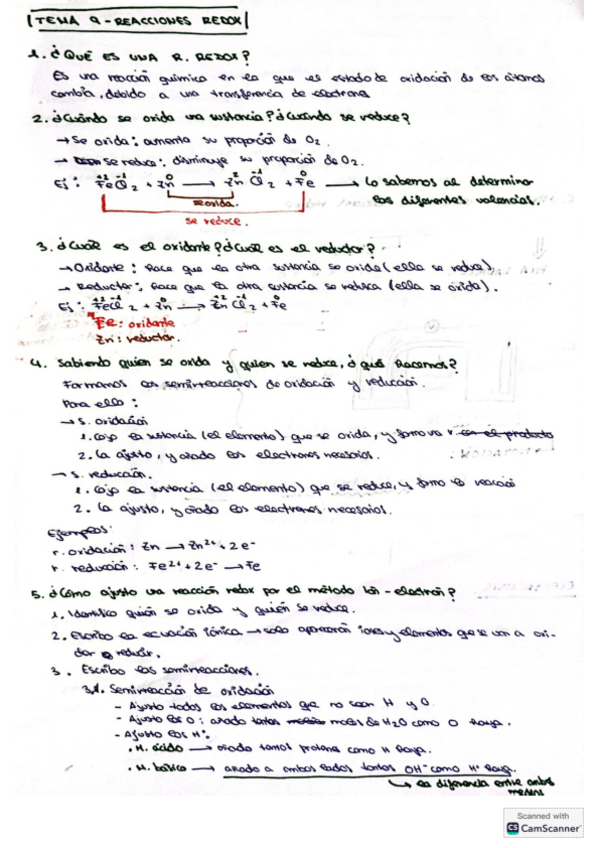 TEMA 9 - REACCIONES REDOX
1. ¿QUÉ ES UNA R. REDOX?
Es una reacción química en la que el estado de oxidación de los átomos
cambia, debido a una transferencia de electrones
2. ¿Cuándo se oxida una sustancia? ¿Cuándo se reduce?
→ Se oxida: aumenta su proporción de O2.
→ se reduce: disminuye su proporción de O2.
Ej: +2 -1 FeCl2 + 0 Zn → 2 -1 ZnCl2 + 0 Fe → lo sabemos al determinar
se oxida. las diferentes valencias.
se reduce.
3. ¿Cuál es el oxidante? ¿Cuál es el reductor?
→ Oxidante: hace que la otra sustancia se oxide (ella se reduce).
→ Reductor: hace que la otra sustancia se reduzca (ella se oxida).
Ej: +2 -1 FeCl2 + 0 Zn → +2 -1 ZnCl2 + 0 Fe
Fe: oxidante
Zn: reductor.
4. Sabiendo quien se oxida y quien se reduce, ¿qué hacemos?
Formamos las semirreacciones de oxidación y reducción.
Para ello:
→ S. oxidación
1. Cojo la sustancia (el elemento) que se oxida, y formo va r. con el producto
2. La ajusto, y añado los electrones necesarios.
→ S. reducción.
1. Cojo la sustancia (el elemento) que se reduce, y formo la reacción
2. La ajusto, y añado los electrones necesarios.
Ejemplos:
r. oxidación: Zn → Zn2+ + 2e-
r. reducción: Fe2+ + 2e- → Fe
5. ¿Cómo ajusto una reacción redox por el método ión - electrón?
1. Identifico quién se oxida y quién se reduce.
2. Escribo la ecuación iónica → solo aparecerán iones y elementos que se van a oxi-
dar o reducir.
3. Escribo las semirreacciones.
3.1. Semirreacción de oxidación
- Ajusto todos los elementos que no sean H y O.
- Ajusto los O: añado tantos moles de H2O como O haya.
- Ajusto los H:
• M. ácido → añado tantos protones como H haya.
• M. básico → añado a ambos lados tantos OH- como H+ haya.
→ la diferencia entre ambos
Scanned with
CS CamScanner